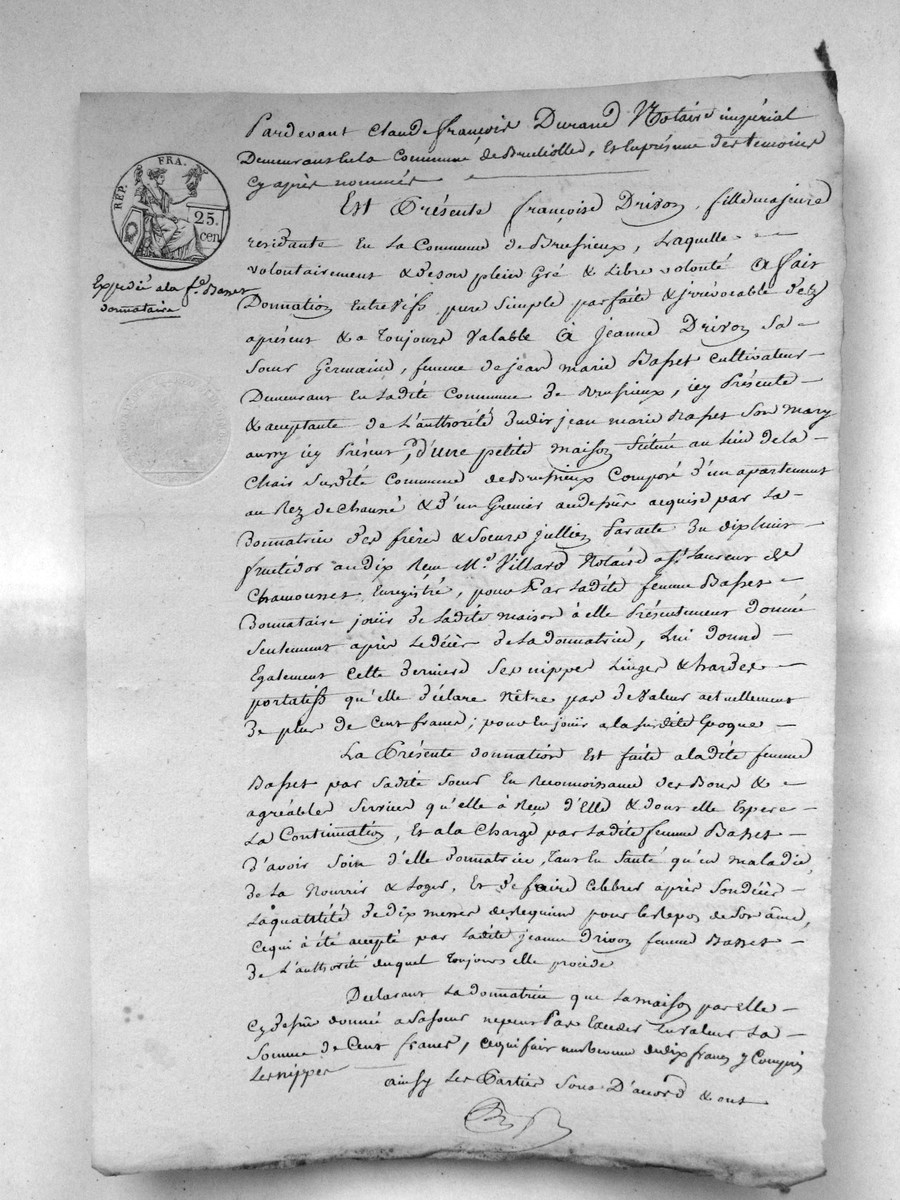 Pardevant Claude françois Durand Notaire impérial
Demeurant En la Commune de Brulliolles, Et En présence des temoins
Cy après nommés
Est Présente françoise Drivon, fille majeure
residante En la Commune de Brussieux, Laquelle
volontairement & de son plein Gré & Libre volonté a fait
Donnation Entrevifs pure Simple parfaite & irrévocable dès
aprésent & a Toujours Valable à Jeanne Drivon Sa
Soeur Germaine, femme de jean marie Basset Cultivateur
Demeurant En Ladite Commune de Brussieux, icy Présente
& acceptante de L'authorité dudit jean marie Basset Son mary
aussy icy Présent, d'une petite maison Scituée au lieu de la
Chais Susdite Commune de Brussieux Composé d'un apartement
au Rez de Chaussé & d'un Grenier au dessus acquise par La
Donnatrice des frère & Soeurs jullien Par acte du dix huit
fructidor an dix Reçu Me Villard Notaire a St Laurent de
Chamousset Enregistré, pour Par Ladite femme Basset
Donnataire jouir de Ladite maison à elle Présentement donnée
Seulement après Le décès de La donnatrice, Lui donne
Egalement Cette derniere Ses nippes Linges & hardes
portatifs qu'elle déclare N'être pas de Valeur actuellement
De plus de Cent francs; pour En jouir a la Susdite Epoque
La Présente donnation Est faite a ladite femme
Basset par Sadite Soeur En Reconnoissance des Bons &
agréables Services qu'elle à Reçu d'Elle & dont elle Espere
La Continuation, Et a la Charge par Ladite femme Basset
D'avoir Soin d'elle donnatrice, Tant En Santé qu'en maladie,
de La Nourrir & Loger, Et De faire Celebrer après Son décès
La quantité de dix messes de Requiem pour le Repos de Son âme,
Ce qui à été accepté par Ladite jeanne Drivon femme Basset
De L'authorité duquel Toujours elle procède
Declarant La donnatrice que La maison par Elle
Cy dessus donnée a Sa Soeur ne peut Pas Exceder En valeur La
Somme de Cent francs, Ce qui fait un Revenu de dix francs y Compris
Les nippes
ainsy Les Parties Sont D'accord & ont
RÉP. FRA.
25.
cen
Expedié a la fe Basset
donnataire